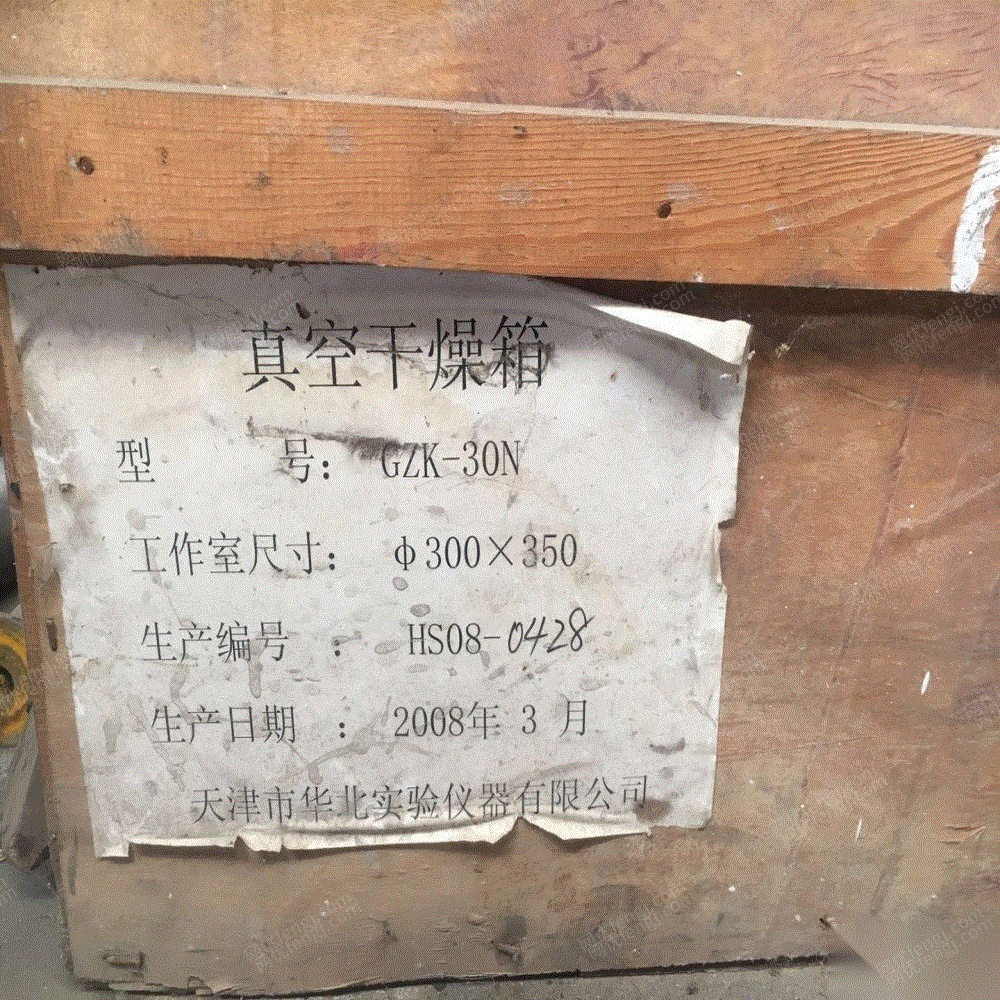 真空干燥箱
型 号： GZK-30N
工作室尺寸： φ300×350
生产编号 ： HS08-0428
生产日期 ： 2008年 3 月
天津市华北实验仪器有限公司